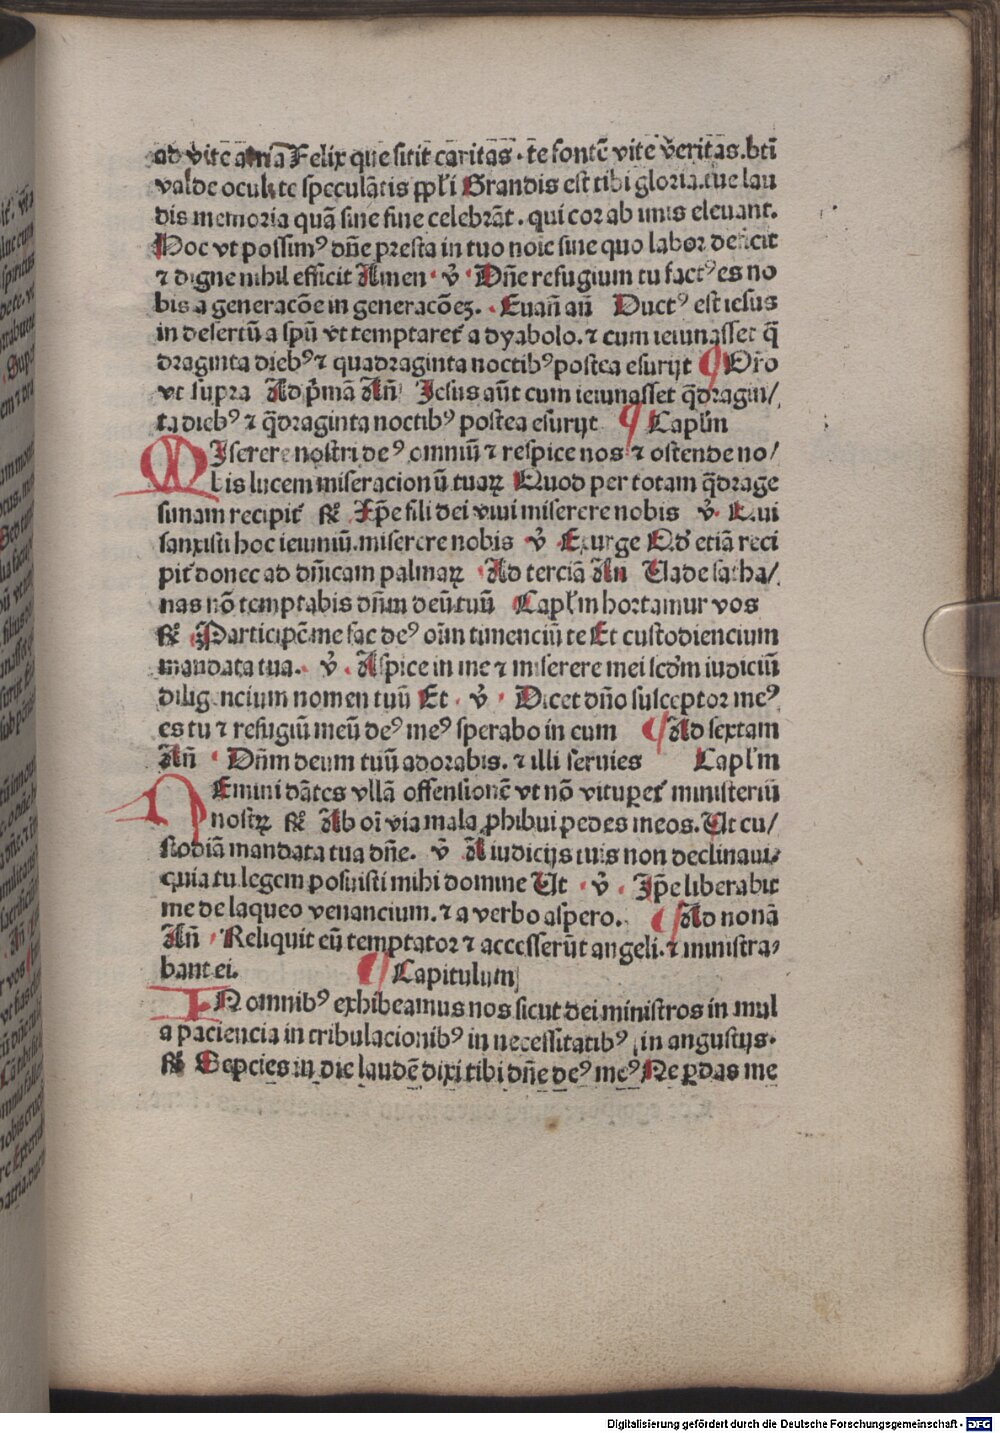 ad vite at̄na Felix que sitit caritas · te fontē vite veritas. bt̄i
valde oculi te speculātis ppl̄i Grandis est tibi gloria. tue lau
dis memoria quā sine fine celebrāt. qui cor ab imis eleuant.
Hoc vt possimꝰ dn̄e presta in tuo noīe sine quo labor deficit
⁊ digne nihil efficit Amen · v̄ · Dn̄e refugium tu factꝰ es no
bis a generacōe in generacōeꝫ. · Euan̄ an̄ Ductꝰ est iesus
in desertū a spū vt temptaret᷑ a dyabolo. ⁊ cum ieiunasset q̄
draginta diebꝰ ⁊ quadraginta noctibꝰ postea esurijt ¶ Or̄o
vt supra Ad p̄mā An̄ Iesus aūt cum ieiunasset q̄dragin/
ta diebꝰ ⁊ q̄draginta noctibꝰ postea esurijt ¶ Capl̄m
MIserere nostri deꝰ omniū ⁊ respice nos ⁊ ostende no/
bis lucem miseracionū tuaꝝ Quod per totam q̄drage
simam recipit᷑ ℟ Xp̄e fili dei viui miserere nobis v̄ · Qui
sanxisti hoc ieiuniū. miserere nobis · v̄ · Exurge Qd̄ etiā reci
pit᷑ donec ad dn̄icam palmaꝝ · Ad terciā An̄ Uade satha/
nas nō temptabis dn̄m deū tuū Capl̄m hortamur vos
℟ Participē me fac deꝰ oīm timenciū te Et custodiencium
mandata tua. · v̄ · Aspice in me ⁊ miserere mei scd̄m iudiciū
diligencium nomen tuū Et · v̄ · Dicet dn̄o susceptor meꝰ
es tu ⁊ refugiū meū deꝰ meꝰ sperabo in eum ¶ Ad sextam
An̄ · Dn̄m deum tuū adorabis. ⁊ illi seruies Capl̄m
NEmini dātes vllā offensionē vt nō vituperet᷑ ministeriū
nostrꝝ ℟ Ab oī via mala ꝓhibui pedes meos. Ut cu/
stodiā mandata tua dn̄e. v̄ A iudicijs tuis non declinaui/
quia tu legem posuisti mihi domine Ut · v̄ · Ip̄e liberabit
me de laqueo venancium. ⁊ a verbo aspero. ¶ Ad nonā
An̄ · Reliquit eū temptator ⁊ accesserūt angeli. ⁊ ministra/
bant ei. ¶ Capitulum
IN omnibꝰ exhibeamus nos sicut dei ministros in mul
a paciencia in tribulacionibꝰ in necessitatibꝰ in angustijs.
℟ Sepcies in die laudē dixi tibi dn̄e deꝰ meꝰ Ne ꝑdas me
Digitalisierung gefördert durch die Deutsche Forschungsgemeinschaft - DFG